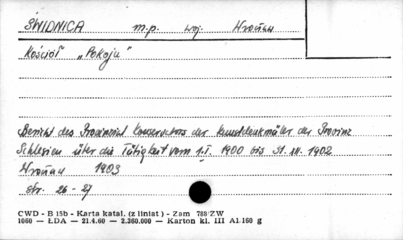 ŚWIDNICA m.p. woj. Wrocław
Kościół "Pokoju"
Bericht des Provinzial Konservators der Kunstdenkmäler der Provinz
Schlesien über die Tätigkeit vom 1.I. 1900 bis 31.XII.1902
Wrocław 1903
str. 26-27
CWD - B 15b - Karta katal. (z liniat) - Zam 788/ZW
1660 — ŁDA — 21.4.60 — 2.360.000 — Karton kl. III A1 160 g